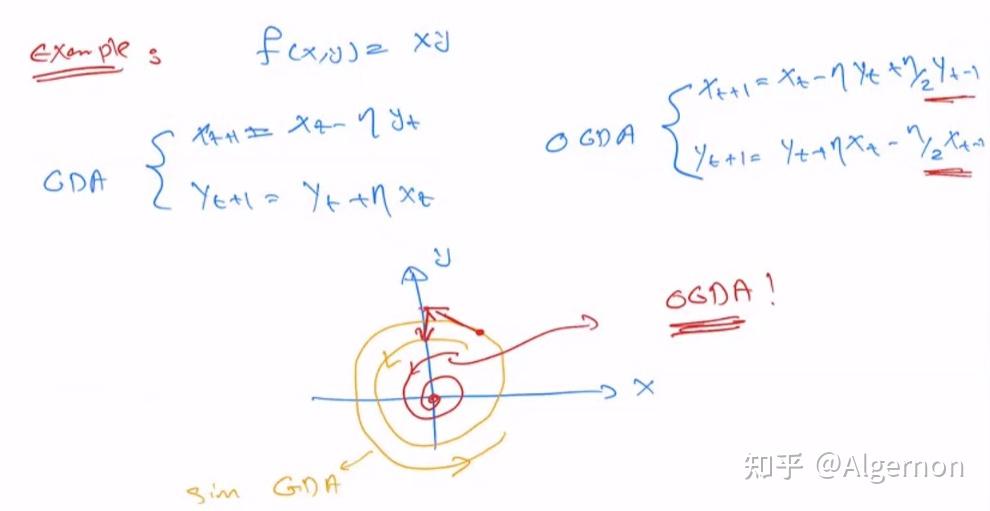 Example : f(x,y) = xy
GDA { x_{t+1} = x_t - η y_t
y_{t+1} = y_t + η x_t
OGDA { x_{t+1} = x_t - η y_t + η/2 y_{t-1}
y_{t+1} = y_t + η x_t - η/2 x_{t-1}
y
OGDA !
x
sim GDA
知乎 @Algernon